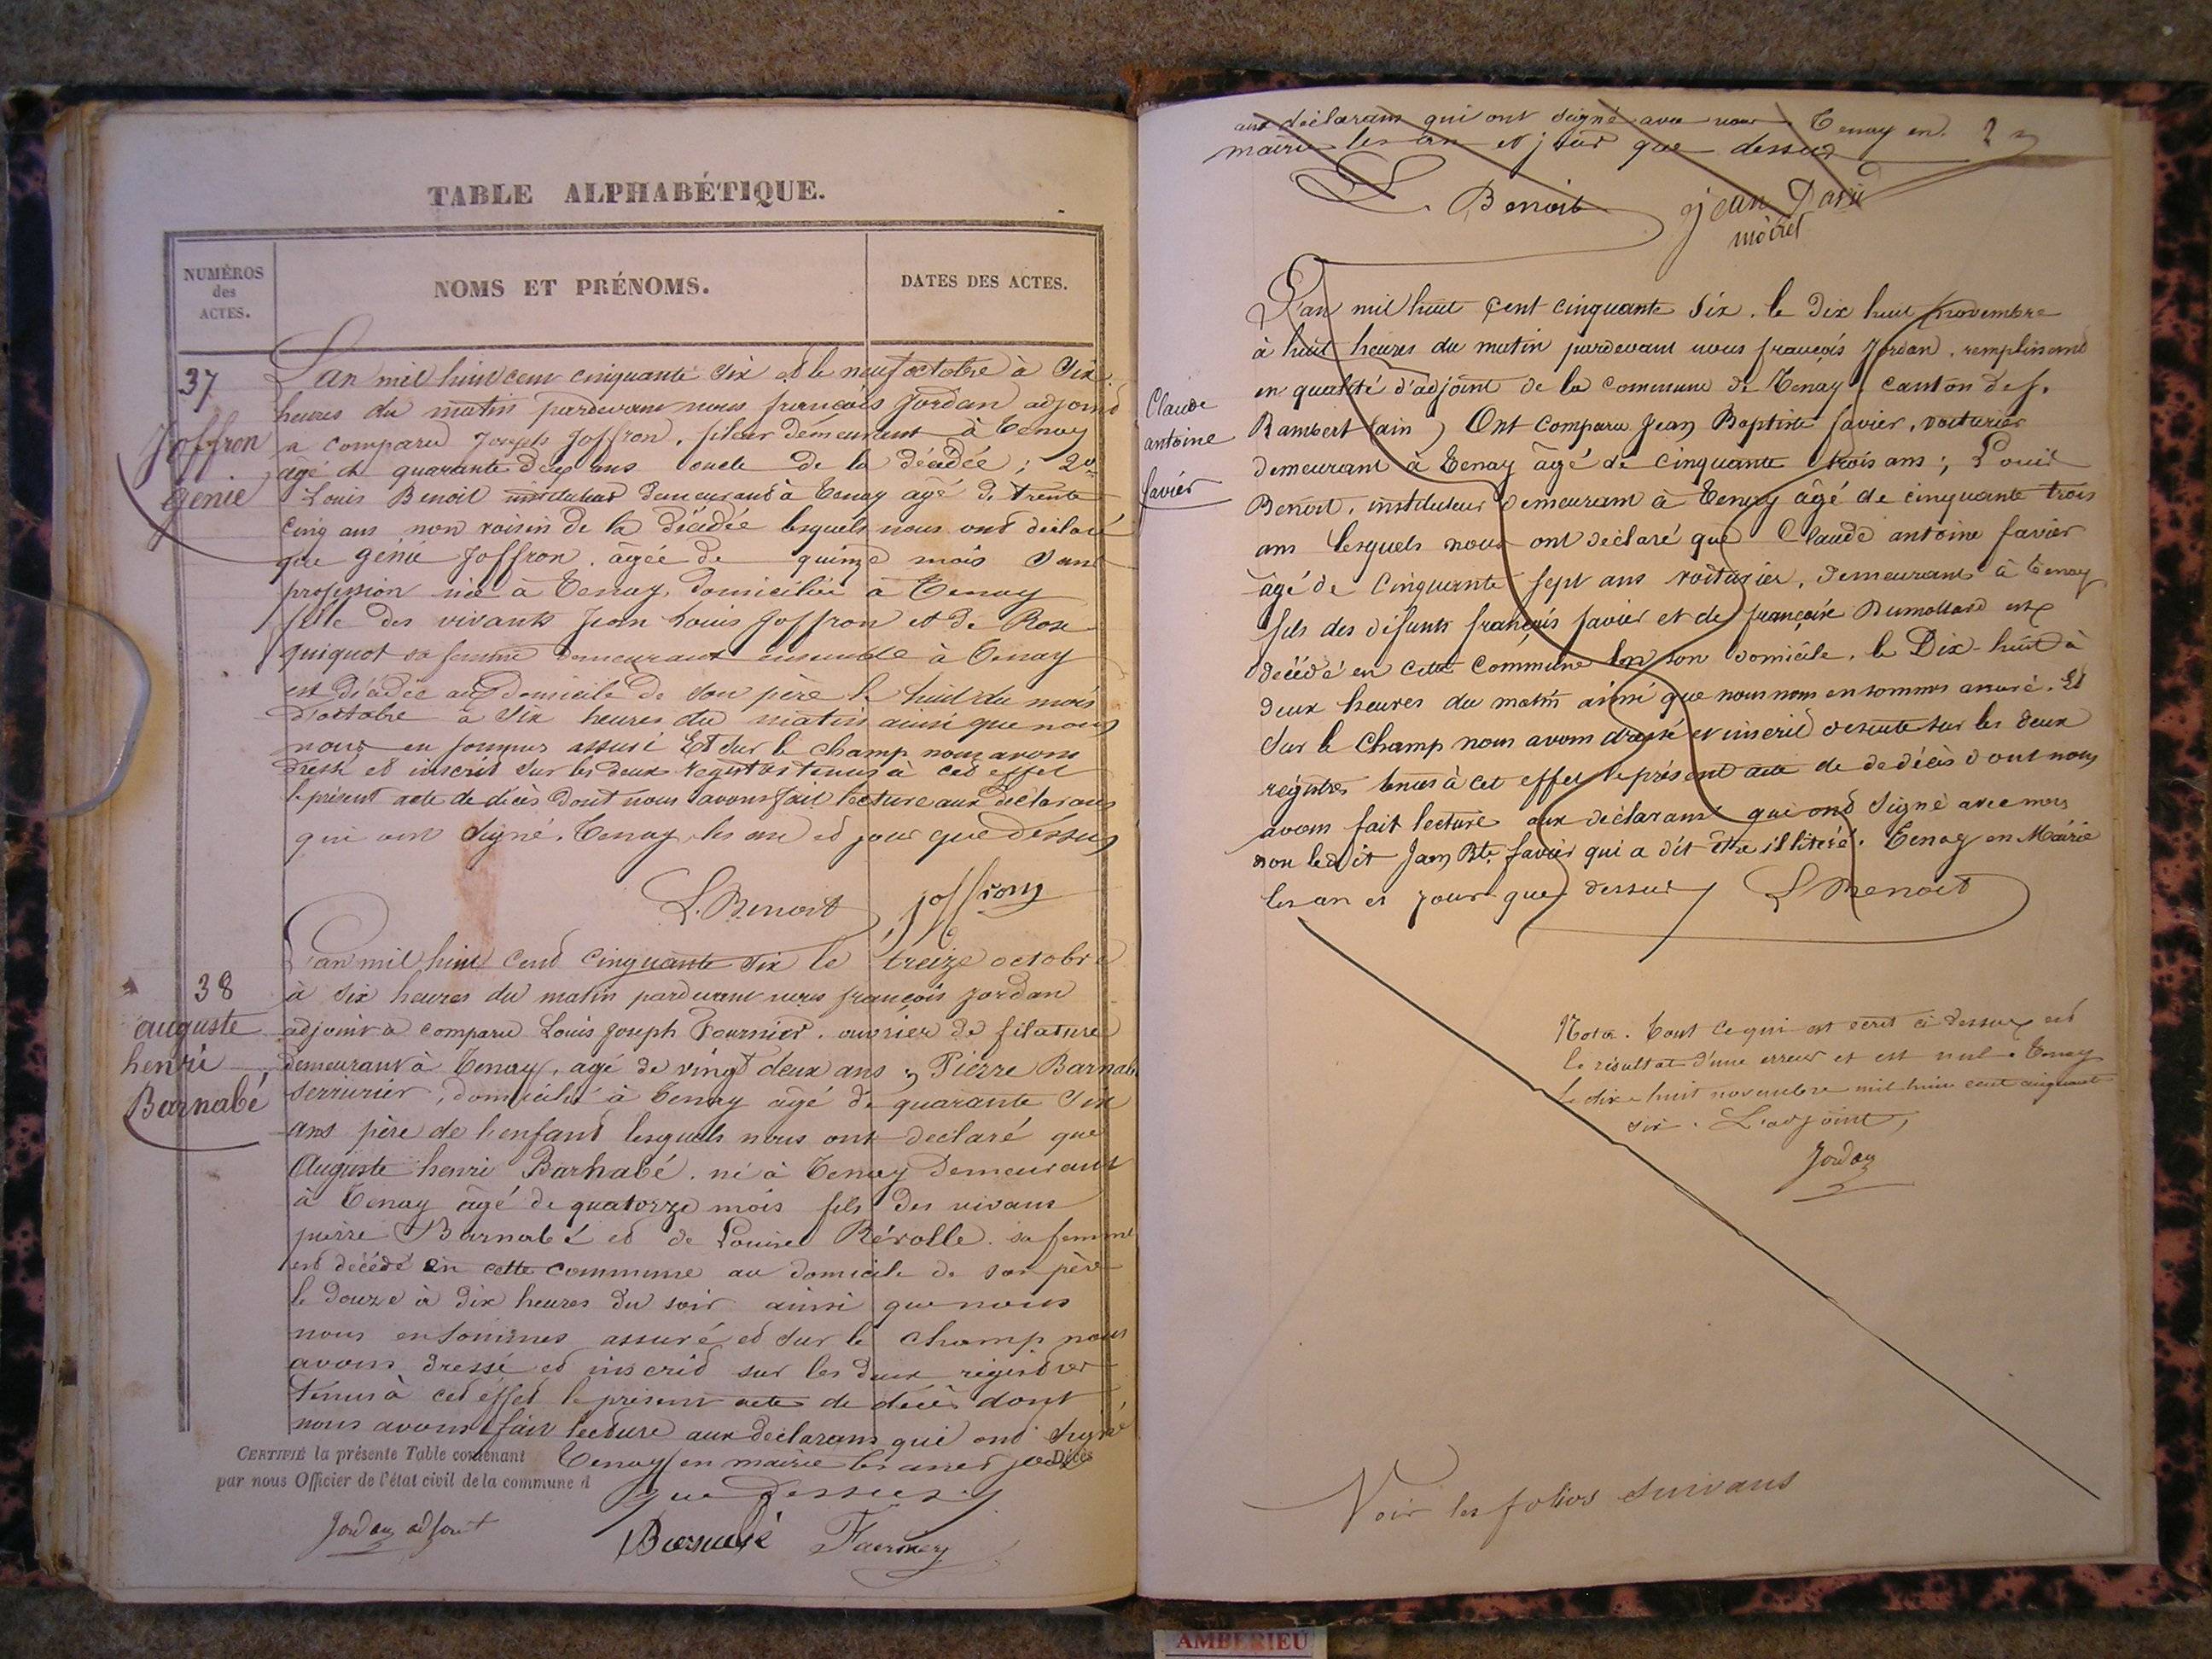 TABLE ALPHABÉTIQUE.
NUMÉROS
des
ACTES.
NOMS ET PRÉNOMS.
DATES DES ACTES.
37
Joffron
Génie
L'an mil huit cent cinquante six et le neuf octobre à six
heures du matin pardevant nous françois Jordan adjoint
a comparu Joseph Joffron, fileur demeurant à Tenay
âgé de quarante deux ans oncle de la décédée ; 2°
Louis Benoit instituteur demeurant à Tenay âgé de trente
cinq ans non voisin de la décédée lesquels nous ont déclaré
que génie Joffron, agée de quinze mois sans
profession née à Tenay, domiciliée à Tenay
fille des vivants Jean Louis Joffron et de Rose
quiquot sa femme demeurant ensemble à Tenay
est décédée au domicile de son père le huit du mois
d'octobre à six heures du matin ainsi que nous
nous en sommes assuré Et sur le champ nous avons
dressé et inscrit sur les deux registres tenus à cet effet
le présent acte de décès dont nous avons fait lecture aux déclarans
qui ont signé. Tenay les an et jour que dessus
L. Benoit joffron
38
auguste
henri
Barnabé
L'an mil huit cent cinquante six le treize octobre
à six heures du matin pardevant nous françois jordan
adjoint a comparu Louis joseph Fournier, ouvrier de filature
demeurant à Tenay, agé de vingt deux ans ; Pierre Barnabé
serrurier, domicilié à Tenay âgé de quarante six
ans père de l'enfant lesquels nous ont déclaré que
Auguste henri Barnabé, né à Tenay demeurant
à Tenay âgé de quatorze mois fils des vivans
pierre Barnabé et de Louise Révolle sa femme
est décédé en cette commune au domicile de son père
le douze à dix heures du soir ainsi que nous
nous en sommes assuré et sur le champ nous
avons dressé et inscrit sur les deux registres
tenus à cet effet le présent acte de décès dont
nous avons fait lecture aux déclarans qui ont signé
CERTIFIÉ la présente Table contenant Décès
par nous Officier de l'état civil de la commune d
Tenay en mairie les an et jour
que dessus
Jordan adjoint Barnabé Fournier
aux déclarans qui ont signé avec nous Tenay en
mairie les an et jour que dessus
L. Benoit jean
Claude
antoine
favier
L'an mil huit cent cinquante six. le dix huit novembre
à huit heures du matin pardevant nous françois Jordan, remplissant
en qualité d'adjoint de la commune de Tenay, canton de S.
Rambert (ain) Ont comparu Jean Baptiste favier, voiturier
demeurant à Tenay âgé de cinquante trois ans ; Louis
Benoit, instituteur demeurant à Tenay âgé de cinquante trois
ans lesquels nous ont déclaré que Claude antoine favier
âgé de cinquante sept ans voiturier, demeurant à Tenay
fils des défunts françois favier et de françoise Dumollard est
décédé en cette commune en son domicile, le Dix-huit à
deux heures du matin ainsi que nous nous en sommes assuré. Et
sur le champ nous avons dressé et inscrit desuite sur les deux
registres tenus à cet effet le présent acte de de décès dont nous
avons fait lecture aux déclarans qui ont signé avec nous
non ledit Jean Bte favier qui a dit être illitéré. Tenay en Mairie
les an et jour que dessus L Benoit
Nota. Tout ce qui est écrit ci dessus est
le résultat d'une erreur et est nul. Tenay
le dix-huit novembre mil huit cent cinquante
six. L'adjoint,
Jordan
Voir les folios suivans
AMBERIEU